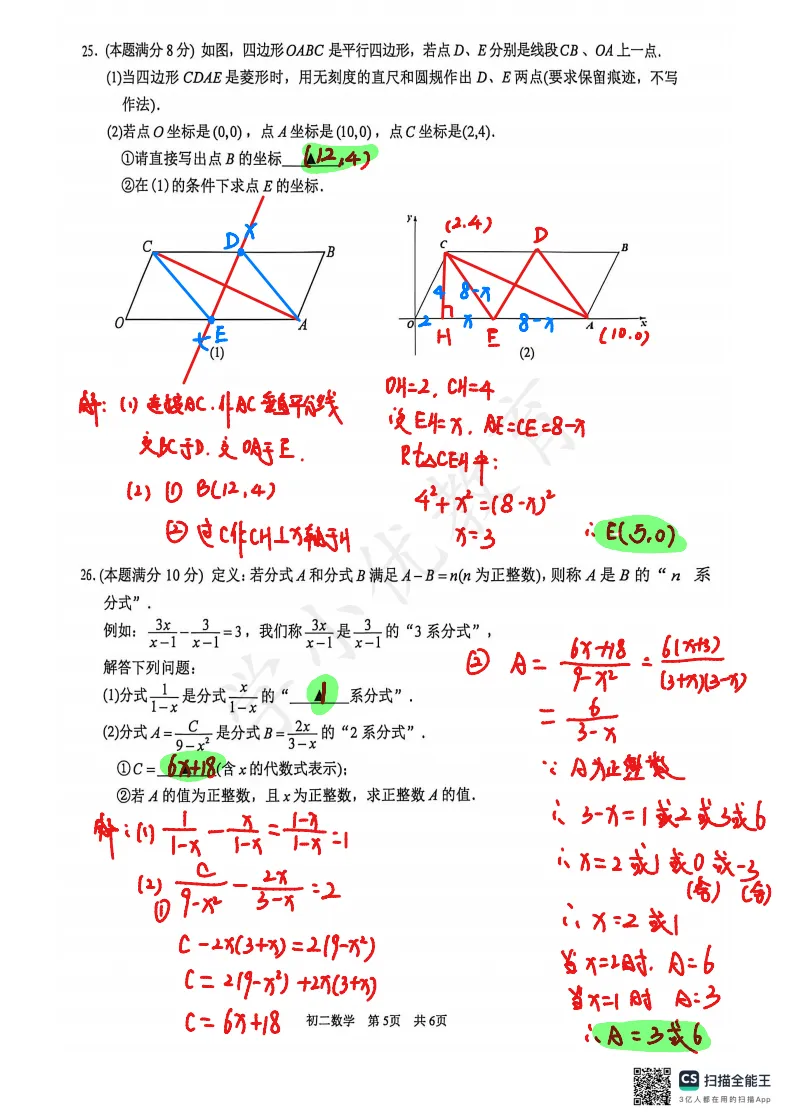 25．(本题满分 8 分) 如图，四边形 OABC 是平行四边形，若点 D、E 分别是线段 CB 、OA 上一点．
(1)当四边形 CDAE 是菱形时，用无刻度的直尺和圆规作出 D、E 两点(要求保留痕迹，不写
作法)．
(2)若点 O 坐标是 (0,0) ，点 A 坐标是 (10,0) ，点 C 坐标是 (2,4)．
①请直接写出点 B 的坐标 ▲ (12,4)
②在 (1) 的条件下求点 E 的坐标．
C D B
O E A
(1)
y (2.4)
C D B
4 8-x
O 2 H x E 8-x A x
(10.0)
(2)
解：(1) 连接AC．作AC 垂直平分线
交BC于D．交 OA于E．
(2) ① B(12,4)
② 过C作CH⊥x轴于H
OH=2, CH=4
设 EH=x, AE=CE=8-x
Rt△CEH中：
4²+x²=(8-x)²
x=3 ∴ E(5,0)
26．(本题满分 10 分) 定义：若分式 A 和分式 B 满足 A－B＝n(n 为正整数)，则称 A 是 B 的 “ n 系
分式”．
例如： 3x/(x-1) - 3/(x-1) =3 ，我们称 3x/(x-1) 是 3/(x-1) 的 “3 系分式”，
解答下列问题：
(1)分式 1/(1-x) 是分式 x/(1-x) 的 “ ▲ 1 系分式”．
(2)分式 A= C/(9-x²) 是分式 B= 2x/(3-x) 的 “2 系分式”．
①C = ▲ 6x+18 (含 x 的代数式表示)；
②若 A 的值为正整数，且 x 为正整数，求正整数 A 的值．
解：(1) 1/(1-x) - x/(1-x) = (1-x)/(1-x) =1
(2) ① C/(9-x²) - 2x/(3-x) =2
C-2x(3+x)=2(9-x²)
C= 2(9-x²)+2x(3+x)
C= 6x+18
② A= (6x+18)/(9-x²) = 6(x+3)/((3+x)(3-x))
= 6/(3-x)
∵ A为正整数
∴ 3-x=1或2或3或6
∴ x=2或1或0或-3
(舍) (舍)
∴ x=2或1
当x=2时．A=6
当x=1时 A=3
∴A=3或6
初二数学 第 5页 共 6页
学小优教育
CS 扫描全能王
3亿人都在用的扫描App